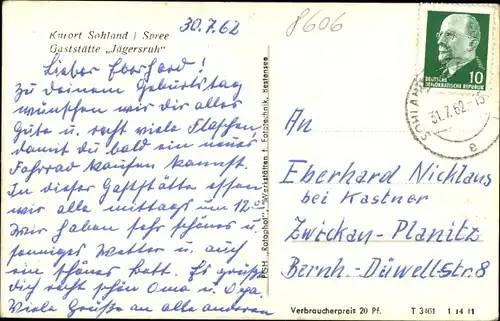 30.7.62
8606
Kurort Sohland / Spree
Gaststätte „Jägersruh"
Lieber Eberhard!
Zu deinem Geburtstag
wünschen wir dir alles
Gute u. recht viele Flaschen
damit du bald ein neues
Fahrrad kaufen kannst.
In dieser Gaststätte essen
wir alle mittags um 12.
Wir haben sehr schönes u.
sonniges Wetter u. auch
ein schönes Bett. Es grüßen
dich recht schön Oma u. Opa.
Viele Grüße an alle anderen
Werkstätten f. Fototechnik,
10
DEUTSCHE
DEMOKRATISCHE REPUBLIK
SOHLAND
31.7.62-15
e
An
Eberhard Nicklaus
bei Kastner
Zwickau-Planitz
Bernh.-Düwellstr. 8
Verbraucherpreis 20 Pf.
T 3461 1 14 11